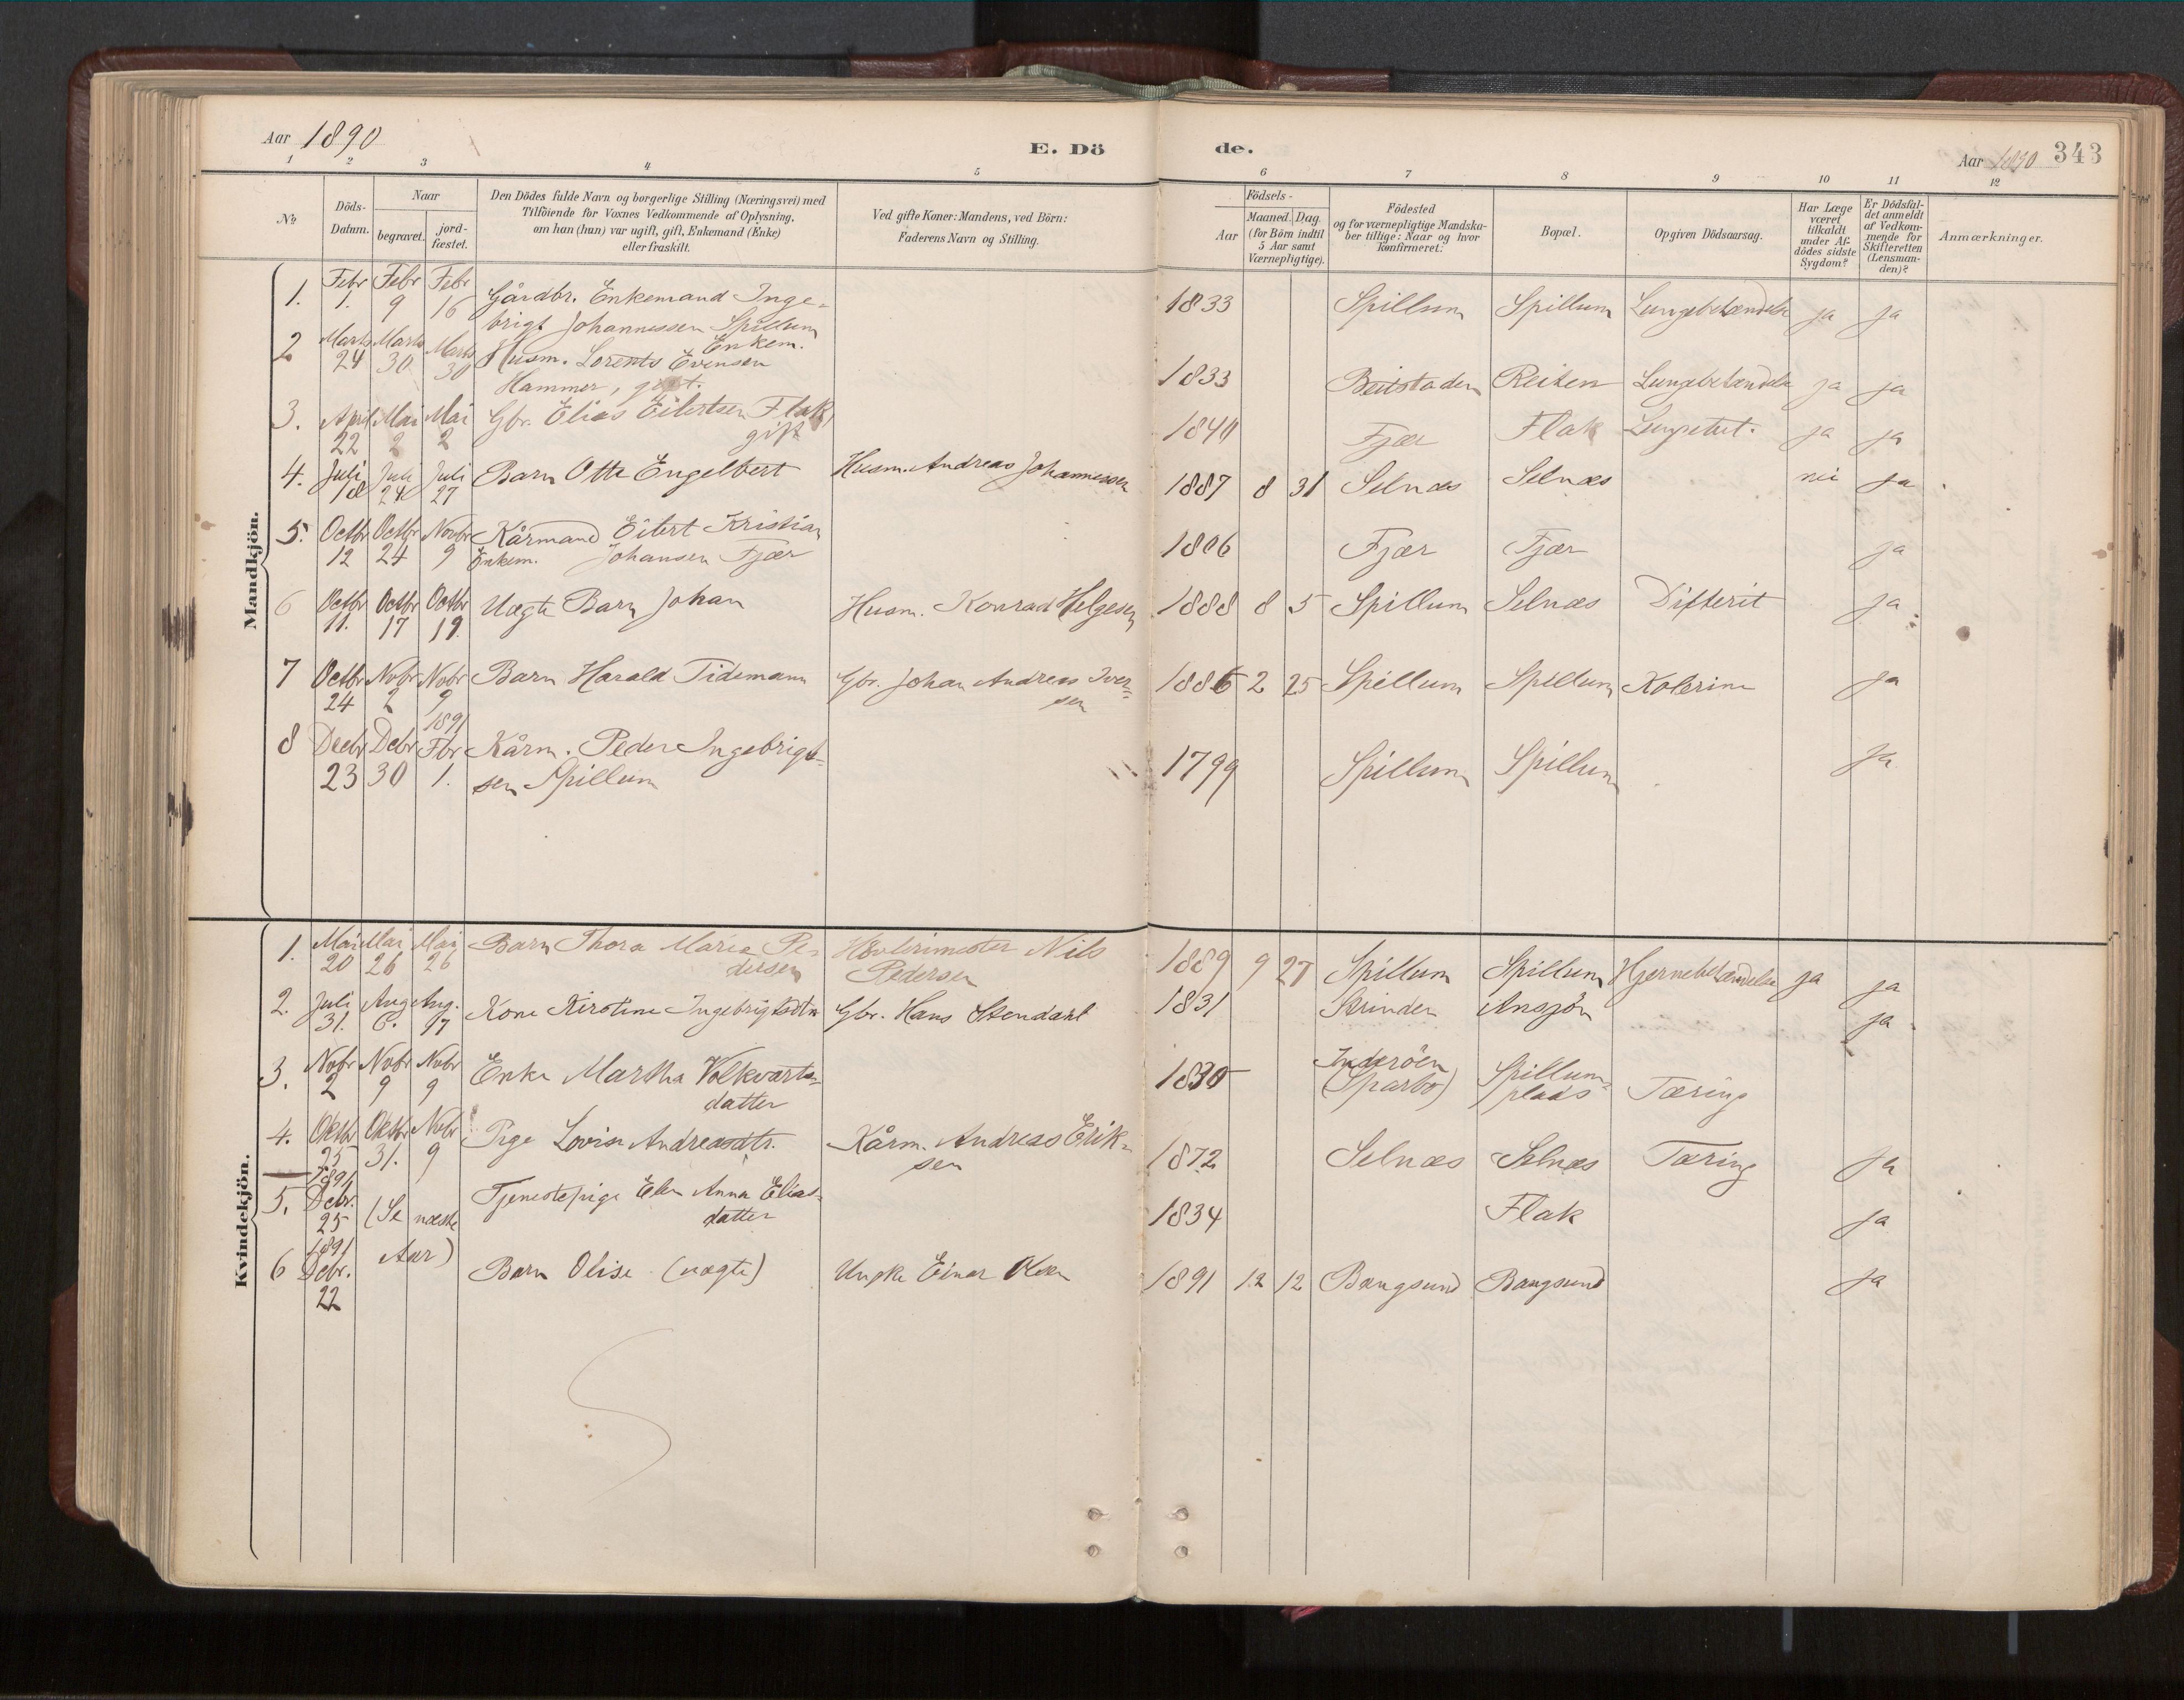 Aar 1890
E. Dö de.
Aar 1890 343
1 2 3 4 5 6 7 8 9 10 11 12
No
Döds-Datum.
Naar
begravet.
jord-fæstet.
Den Dödes fulde Navn og borgerlige Stilling (Næringsvei) med
Tilföiende for Voxnes Vedkommende af Oplysning,
om han (hun) var ugift, gift, Enkemand (Enke)
eller fraskilt.
Ved gifte Koner: Mandens, ved Börn:
Faderens Navn og Stilling.
Födsels-
Aar
Maaned. Dag.
(for Börn indtil
5 Aar samt
Værnepligtige).
Födested
og for værnepligtige Mandska-
ber tillige: Naar og hvor
konfirmeret.
Bopæl.
Opgiven Dödsaarsag.
Har Læge
været
tilkaldt
under Af-
dödes sidste
Sygdom?
Er Dödsfal-
det anmeldt
af Vedkom-
mende for
Skifteretten
(Lensman-
den)?
Anmærkninger.
Mandkjön.
1. Febr 1. Febr 9 Febr 16 Gårdbr. Enkemand Inge-
brigt Johannessen Spillum 1833 Spillum Spillum Lungebetændelse ja ja
2 Marts 24 Marts 30 Marts 30 Husm. Lorents Evensen Enkem.
Hammer, 1833 Beitstaden Reiten Lungebetændelse ja ja
3. April 22 Mai 2 Mai 2 Gbr. Elias Eilertsen Flak,
gift 1840 Fjær Flak ja ja
4. Juli 18 Juli 24 Juli 27 Barn Otto Engelbert Husm. Andreas Johannessen 1887 8 31 Selnæs Selnæs nei ja
5. Octbr 12 Octbr 24 Novbr 9 Kårmand Eilert Kristian
Enkem. Johansen Fjær 1806 Fjær Fjær ja
6 Octbr 11. Octbr 17 Octbr 19. Uægte Barn Johan Husm. Konrad Helgesen 1888 8 5 Spillum Selnæs Difterit ja
7 Octbr 24 Nvbr 2 Nvbr 9 Barn Harald Tidemann Gbr. Johan Andreas Iver-
sen 1886 2 25 Spillum Spillum Kolerine ja
8 Decbr 23 Debr 30 1891 Fbr 1. Kårm. Peder Ingebrigt-
sen Spillum 1799 Spillum Spillum ja
Kvindekjön.
1. Mai 20 Mai 26 Mai 26 Barn Thora Marie Pe-
dersen Hövlerimester Nils
Pedersen 1889 9 27 Spillum Spillum Hjernebetændelse ja ja
2. Juli 31. Aug 6. Aug. 17 Kone Kirstine Ingebrigtsdtr Gbr. Hans Stendahl 1831 Strinden ja
3. Nvbr 2 Nvbr 9 Nvbr 9 Enke Martha Volkvarts-
datter 1830 Inderöen
(Sparbo) Spillum-
plads Tæring
4. Oktbr 25 Oktbr 31. Nvbr 9 Pige Lovise Andreasdtr. Kårm. Andreas Erik-
sen 1872 Selnæs Selnæs Tæring ja
5. 1891 Debr. 25 (Se næste Aar) Tjenestepige Elen Anna Elias-
datter 1834 Flak ja
6 1891 Debr. 22 Barn Olise (uægte) Ungke Einar Olsen 1891 12 12 Bangsund Bangsund ja